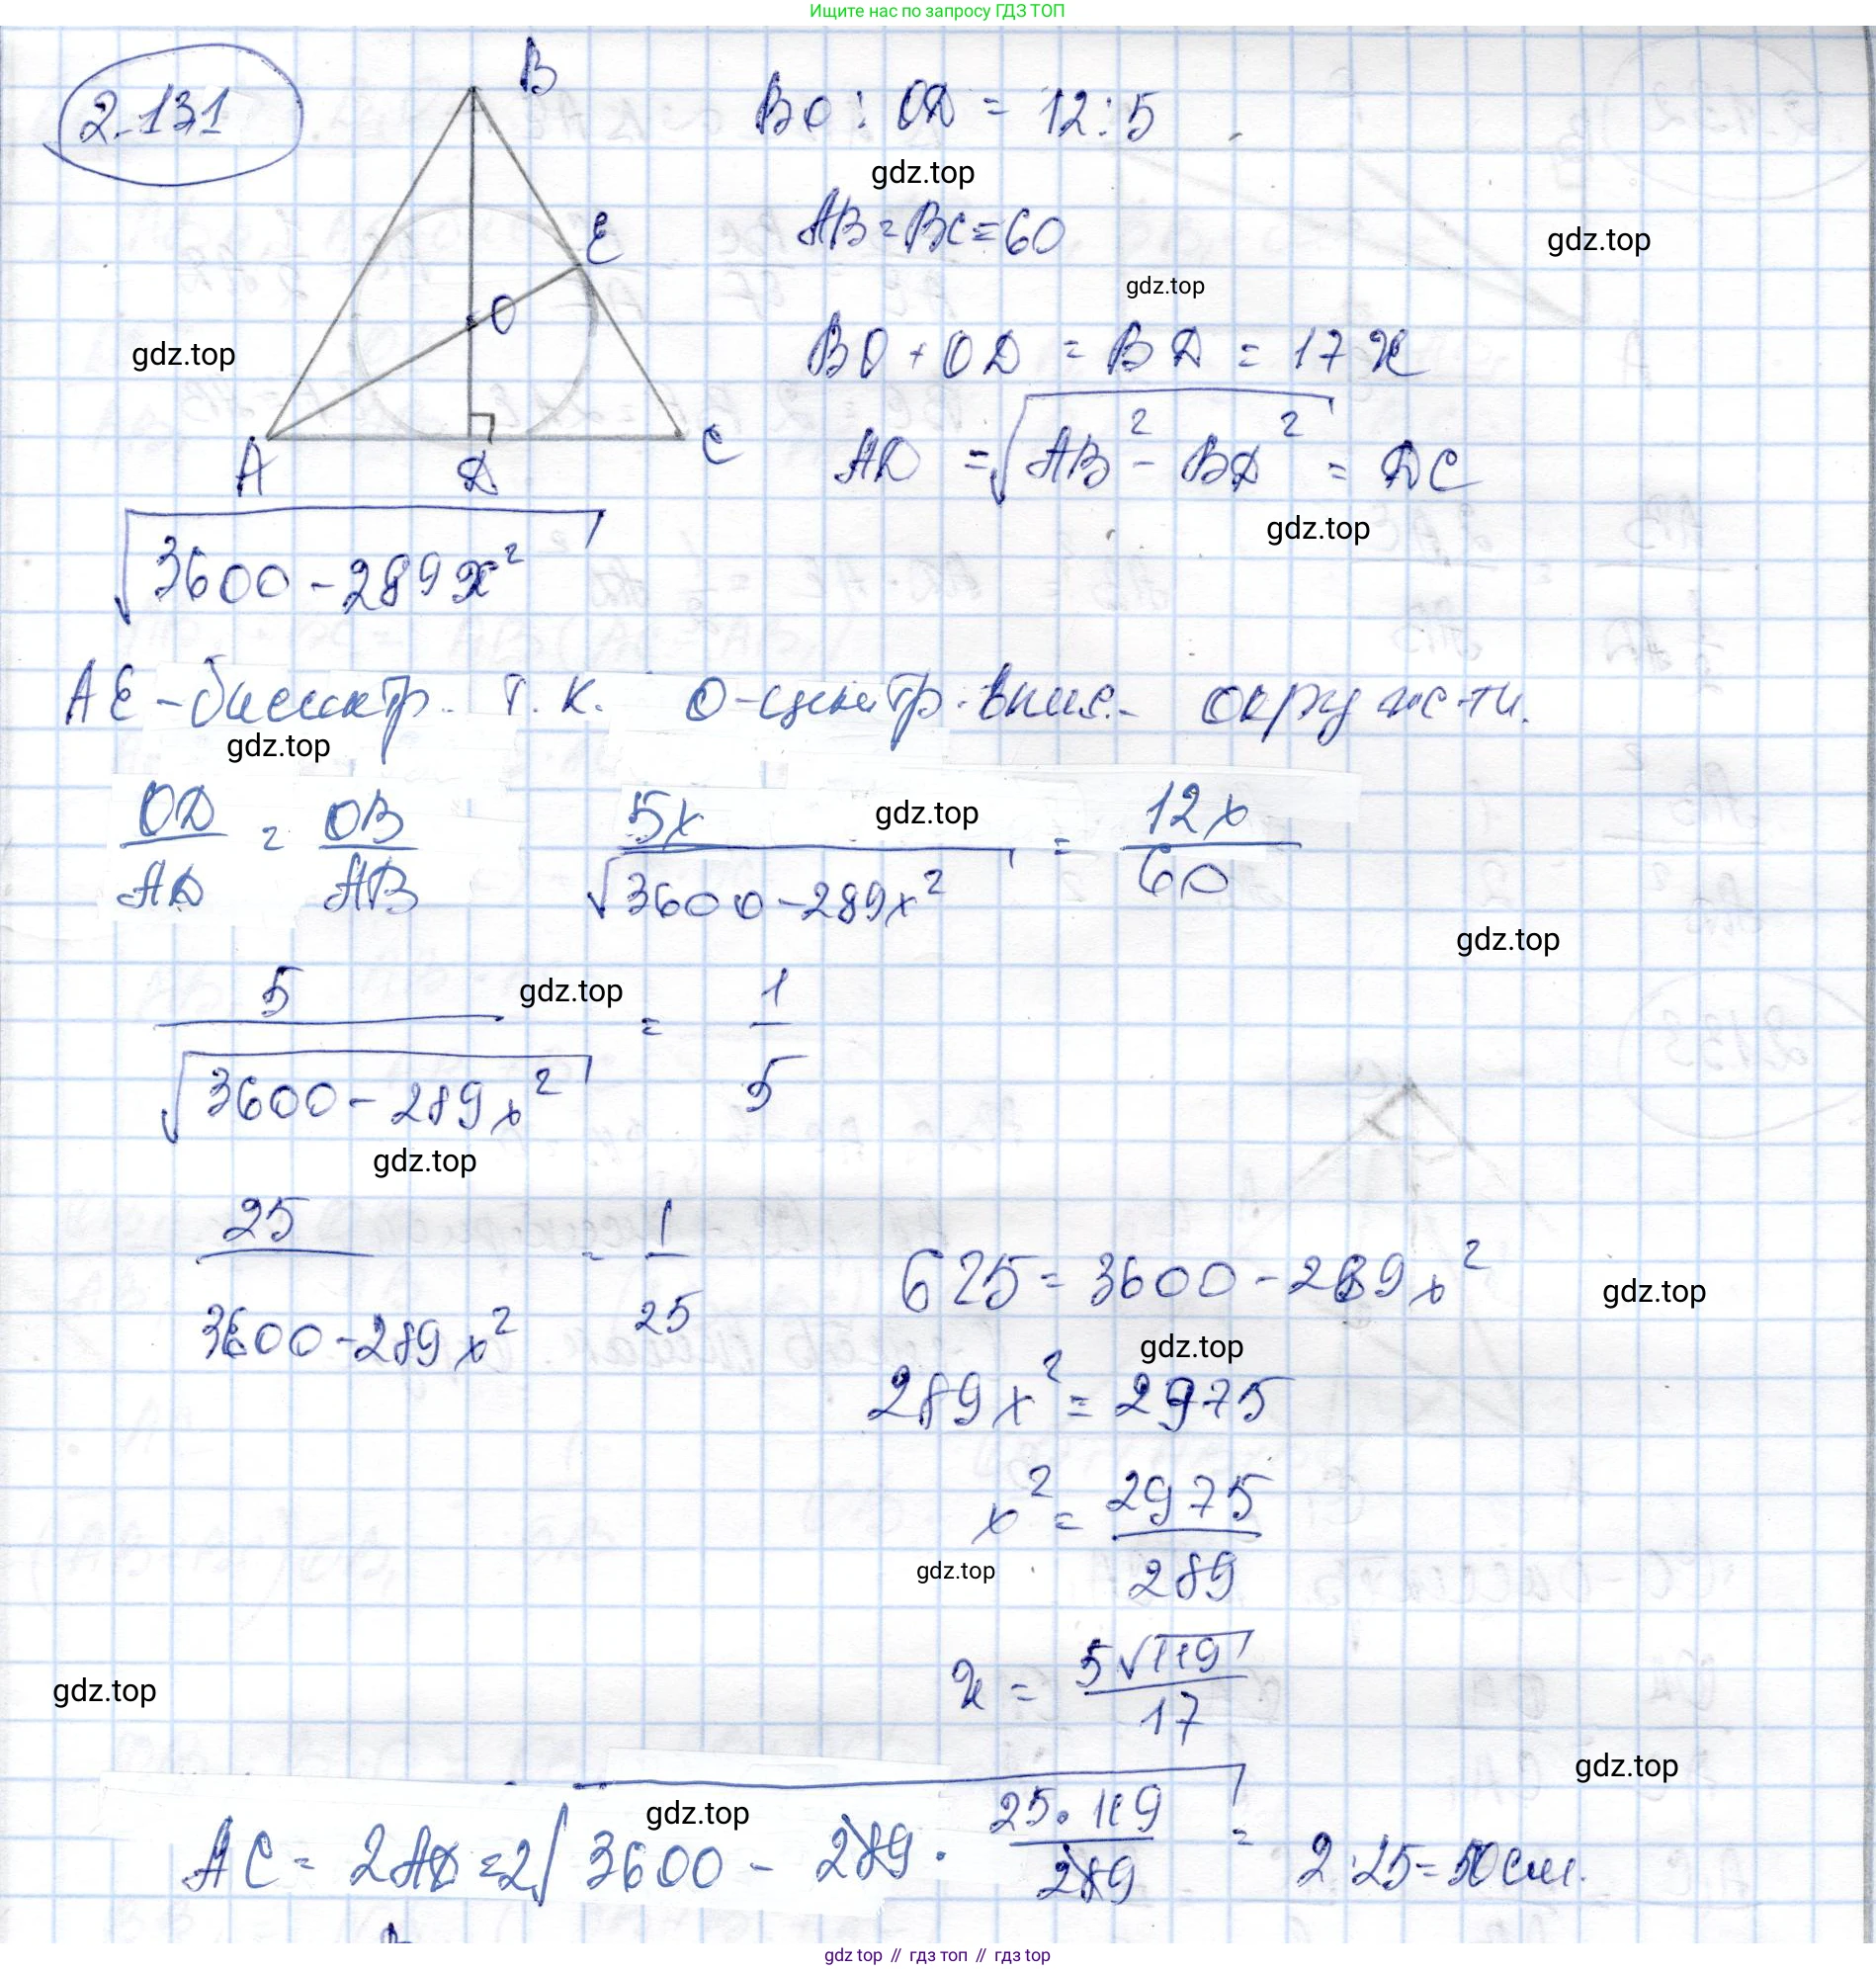 Ищите нас по запросу ГДЗ ТОП
2.131
B
BO : OD = 12:5
gdz.top
AB = BC = 60
gdz.top
E
gdz.top
O
gdz.top
BO + OD = BD = 17x
A
D
C
AD = √(AB² - BD²) = DC
gdz.top
√(3600 - 289x²)
AE - биссектр. т.к. O - центр. впис. окружности.
gdz.top
OD/AD = OB/AB 5x/√(3600 - 289x²) = 12x/60
gdz.top
gdz.top
5/√(3600 - 289x²) = 1/5
gdz.top
gdz.top
25/(3600 - 289x²) = 1/25 625 = 3600 - 289x²
gdz.top
gdz.top
289x² = 2975
x² = 2975/289
gdz.top
x = 5√119/17
gdz.top
gdz.top
gdz.top
AC = 2AD = 2√(3600 - 289 · 25·119/289) = 2·25 = 50 см.
gdz top // гдз топ // гдз top